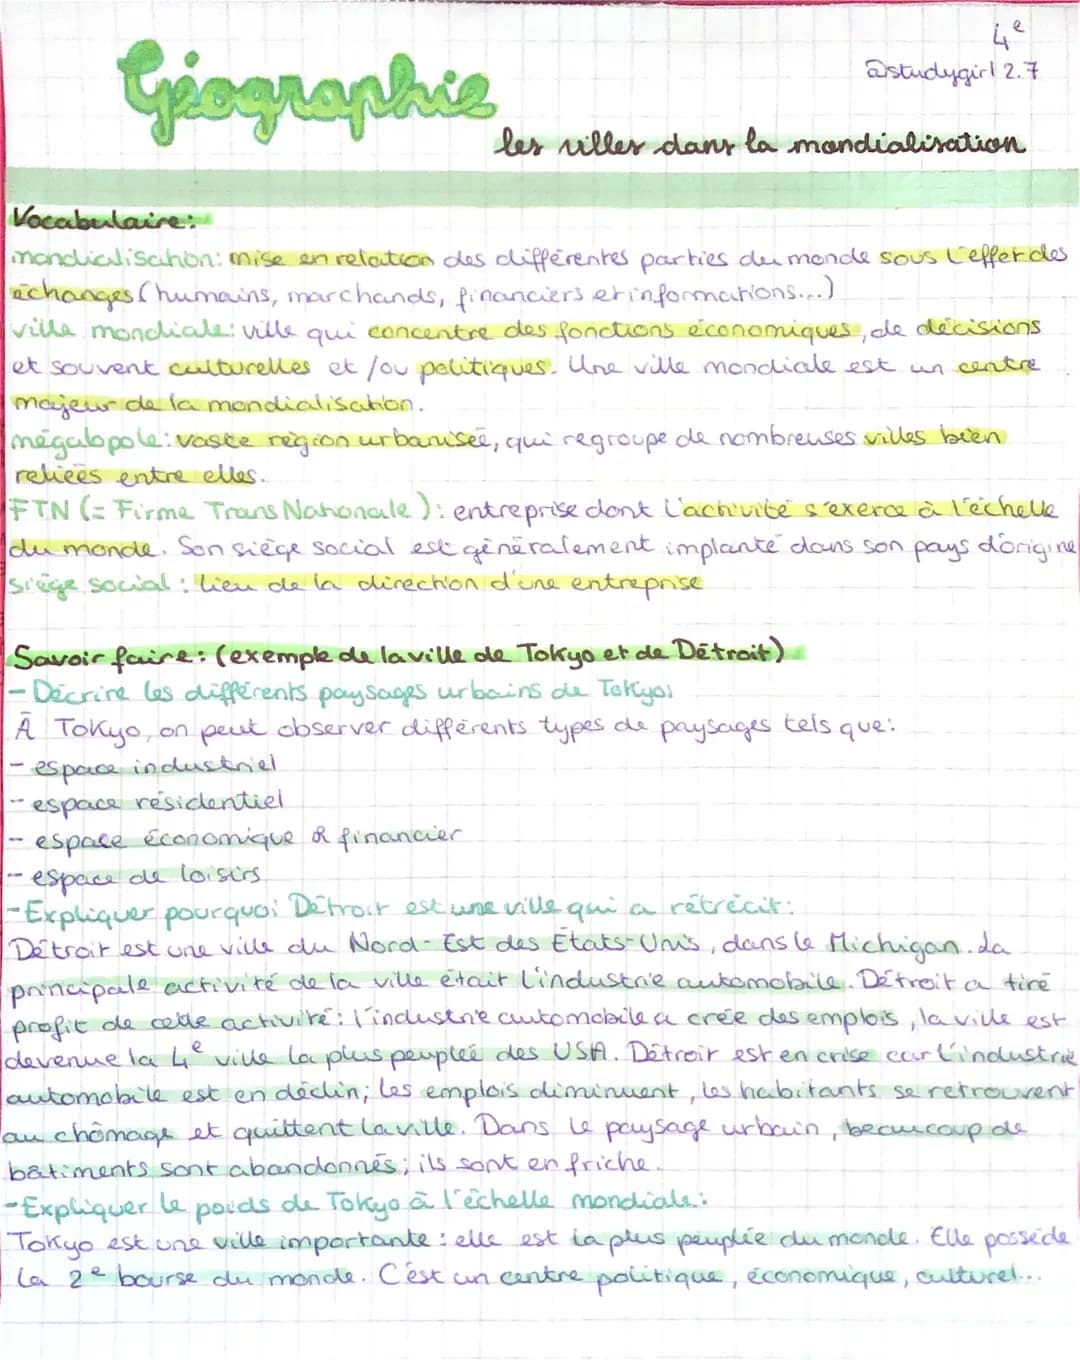 4e
@studygirl 2.7
Géographie
les villes dans la mondialisation
Vocabulaire:
mondialisation: mise en relation des différentes parties du monde sous l'effet des
échanges (humains, marchands, financiers et informations...)
ville mondiale: ville qui concentre des fonctions économiques, de décisions
et souvent culturelles et/ou politiques. Une ville mondiale est un centre
majeur de la mondialisation.
mégalopole: vaste région urbanisée, qui regroupe de nombreuses villes bien
reliées entre elles.
FTN (= Firme TransNationale): entreprise dont l'activité s'exerce à l'échelle
du monde. Son siège social est généralement implanté dans son pays d'origine
siège social: lieu de la direction d'une entreprise
Savoir faire: (exemple de la ville de Tokyo et de Détroit)
- Décrire les différents paysages urbains de Tokyo:
À Tokyo, on peut observer différents types de paysages tels que:
- espace industriel
- espace résidentiel
- espace économique & financier
- espace de loisirs
- Expliquer pourquoi Détroit est une ville qui a rétrécit:
Détroit est une ville du Nord-Est des États-Unis, dans le Michigan. La
principale activité de la ville était l'industrie automobile. Détroit a tiré
profit de cette activité: l'industrie automobile a crée des emplois, la ville est
devenue la 4e ville la plus peuplée des USA. Détroit est en crise car l'industrie
automobile est en déclin; les emplois diminuent, les habitants se retrouvent
au chômage et quittent la ville. Dans le paysage urbain, beaucoup de
bâtiments sont abandonnés; ils sont en friche.
- Expliquer le poids de Tokyo à l'échelle mondiale:
Tokyo est une ville importante: elle est la plus peuplée du monde. Elle possède
la 2e bourse du monde. C'est un centre politique, économique, culturel...